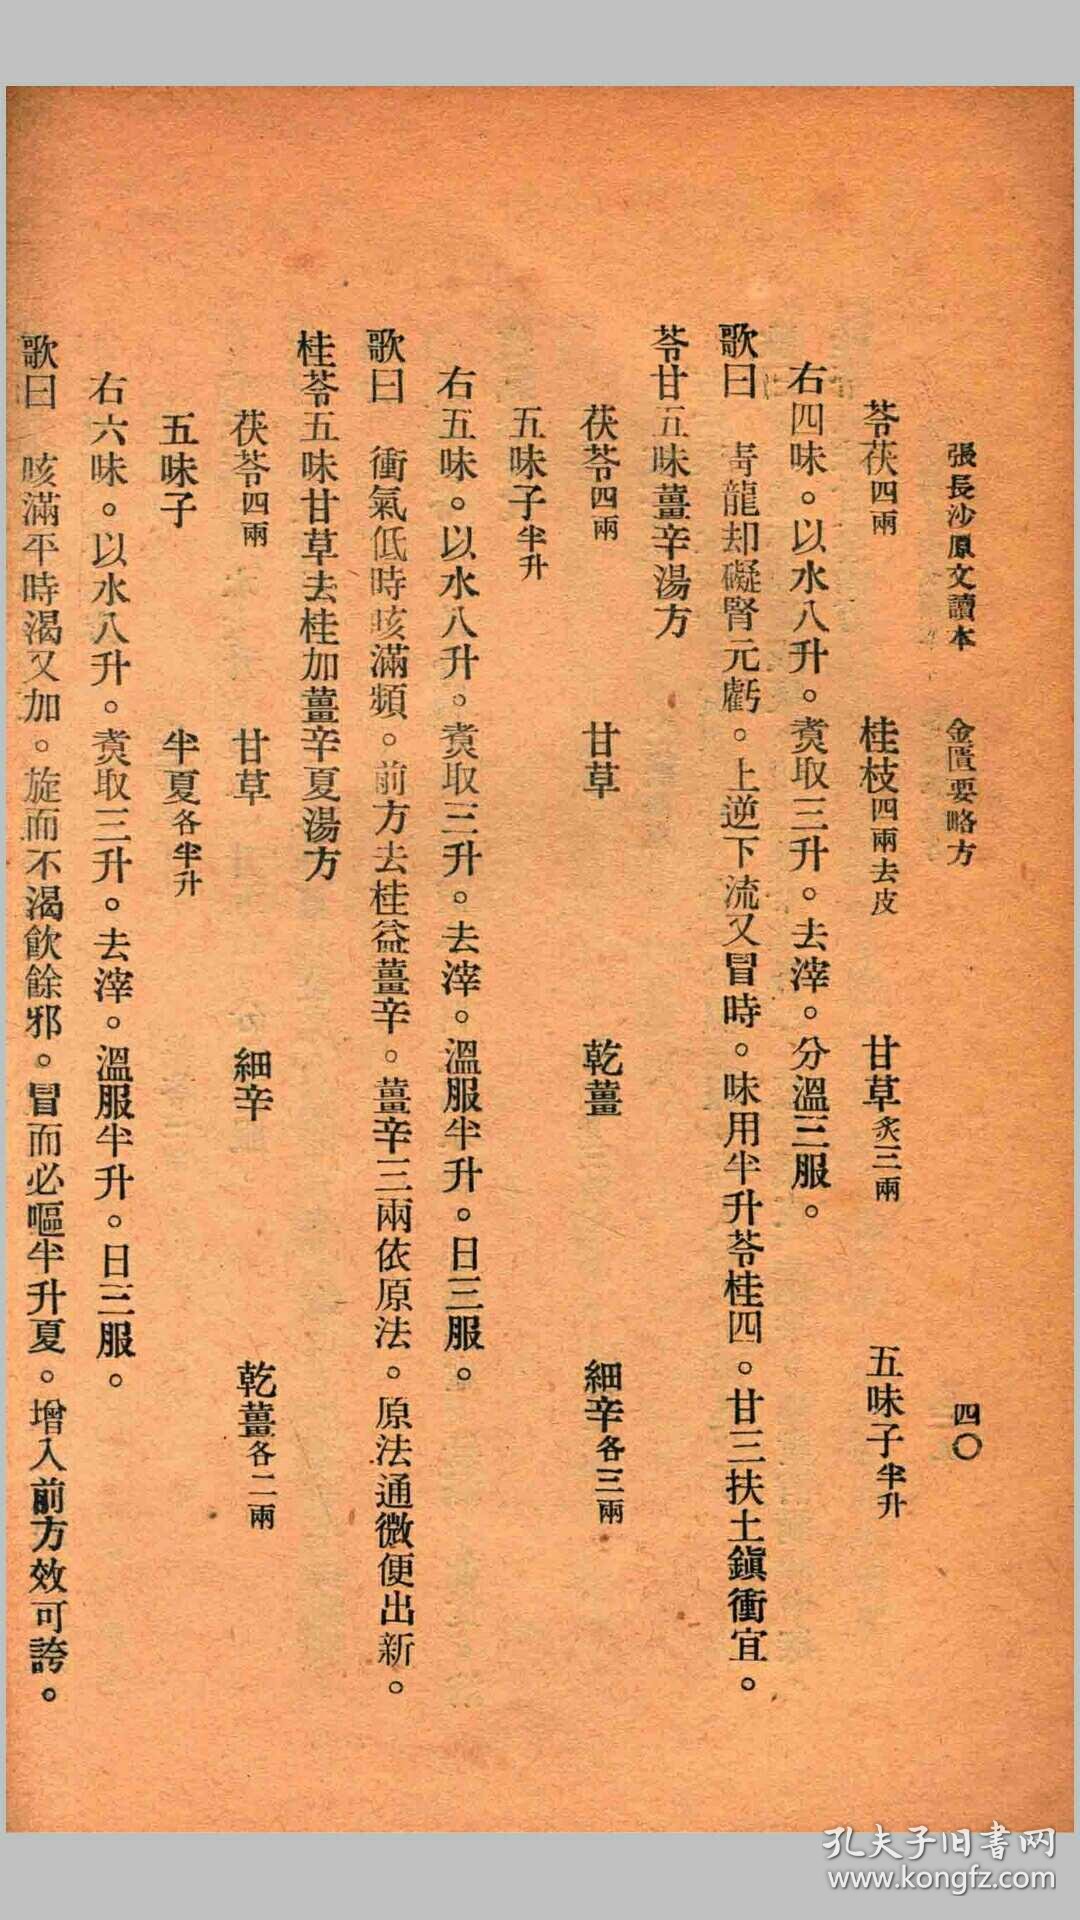 張長沙原文讀本　金匱要略方　四〇
苓茯四兩　桂枝四兩去皮　甘草炙三兩　五味子半升
右四味。以水八升。煑取三升。去滓。分溫三服。
歌曰　靑龍却礙腎元虧。上逆下流又冒時。味用半升苓桂四。甘三扶土鎭衝宜。
苓甘五味薑辛湯方
茯苓四兩　甘草　乾薑　細辛各三兩
五味子半升
右五味。以水八升。煑取三升。去滓。溫服半升。日三服。
歌曰　衝氣低時咳滿頻。前方去桂益薑辛。薑辛三兩依原法。原法通微便出新。
桂苓五味甘草去桂加薑辛夏湯方
茯苓四兩　甘草　細辛　乾薑各二兩
五味子　半夏各半升
右六味。以水八升。煑取三升。去滓。溫服半升。日三服。
歌曰　咳滿平時渴又加。旋而不渴飲餘邪。冒而必嘔半升夏。增入前方效可誇。
孔夫子旧书网
www.kongfz.com